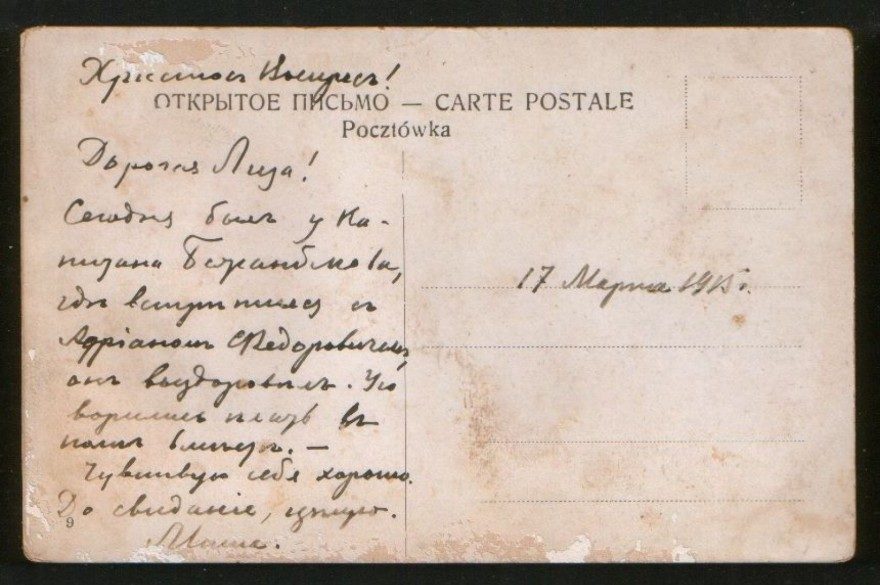 Христосъ Воскресъ!
ОТКРЫТОЕ ПИСЬМО — CARTE POSTALE
Pocztówka
Дорогая Лиза!
Сегодня былъ у Ка-
питана
гдѣ встрѣтился съ
Адріаномъ Ѳедоровичемъ,
онъ выздоровѣлъ. Уго
ворились ѣхать въ
полкъ вмѣстѣ. —
Чувствую себя хорошо.
До свиданіе, цѣлую.
9
17 Марта 1915 г.